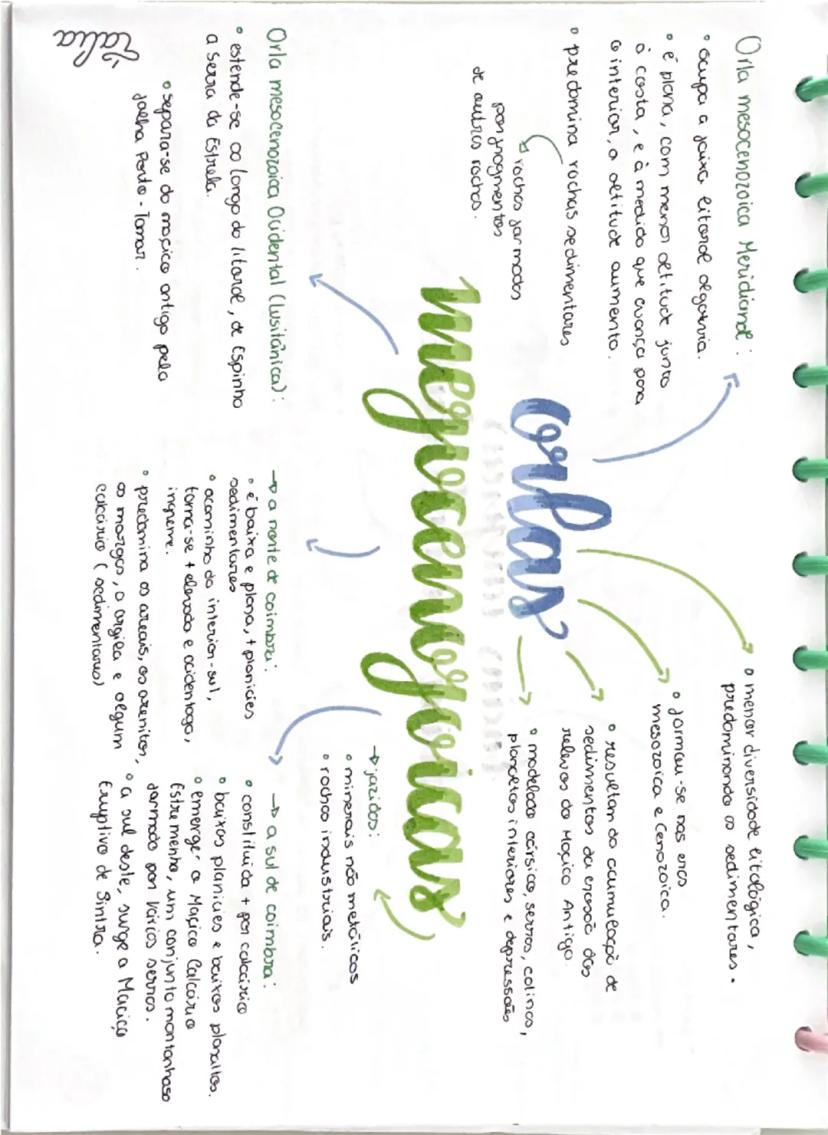 orlas
mesocenozoicas
Orla mesocenozoica Meridional:
• ocupa a faixa litoral algarvia.
• é plana, com menor altitude junto
à costa, e à medida que avança para
o interior, a altitude aumenta.
• predomina rochas sedimentares
rochas formadas
por fragmentos
de outras rochas.
• menor diversidade litológica,
predominando as sedimentares.
• formou-se nas eras
mesozoica e Cenozoica.
• resultam da acumulação de
sedimentos da erosão dos
relevos do Maciço Antigo.
• modelado cársico, serras, colinas,
planaltos interiores e depressões
→ jazidas:
• minerais não metálicos
• rochas industriais.
Orla mesocenozoica Ocidental (lusitânica):
• estende-se ao longo do litoral, de Espinho
a serra da Estrela.
• separa-se do maciço antigo pela
falha Porto-Tomar.
→ a norte de coimbra:
• é baixa e plana, + planicies
sedimentares
• acaminho do interior-sul,
torna-se + elevado e acidentado,
ingreme.
• predomina os areais, os arenitos,
as margas, a argila e algum
calcário (sedimentares)
→ a sul de coimbra:
• constituida + por calcário
• baixas planicies e baixos planaltos.
• emerge a Maciço Calcário
Estremenho, um conjunto montanhoso
formado por várias serras.
• a sul deste, surge a Maciço
Eruptivo de Sintra.
Talia